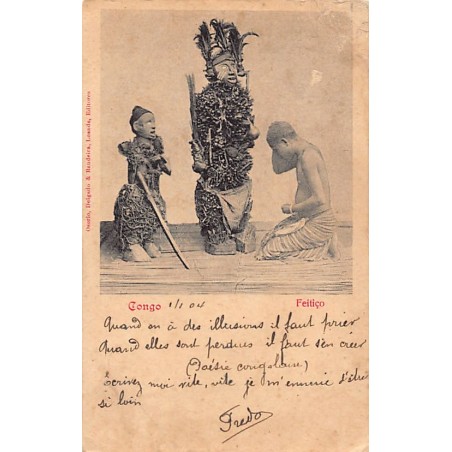 Osorio, Delgado & Bandeira, Loanda, Editores
Congo 1/1 04 Feitiço
Quand on à des illusions il faut prier
Quand elles sont perdues il faut s'en créer
(Poésie congolaise)
écrivez moi vite, vite je m'ennuie d'être
si loin
Fredo